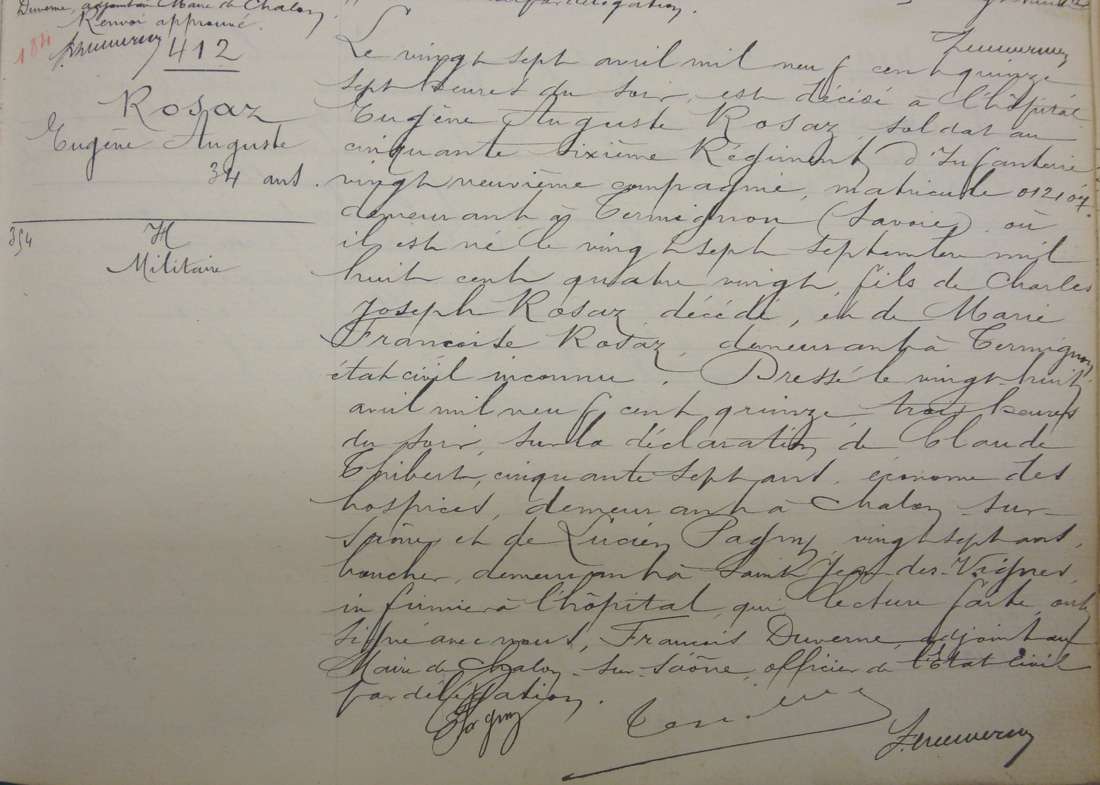 Duverne, adjoint au Maire de Chalon
Renvoi approuvé.
par délégation.
184
412
Rosaz
Eugène Auguste
34 ans.
354
H
Militaire
Le vingt sept avril mil neuf cent quinze
sept heures du soir, est décédé à l'hôpital
Eugène Auguste Rosaz, soldat au
cinquante sixième Régiment d'Infanterie
vingt neuvième compagnie, matricule 012104.
demeurant à Termignon (Savoie), où
il est né le vingt sept septembre mil
huit cent quatre vingt, fils de Charles
Joseph Rosaz, décédé, et de Marie
Françoise Rosaz, demeurant à Termignon,
état civil inconnu. Dressé le vingt-huit
avril mil neuf cent quinze trois heures
du soir, sur la déclaration de Claude
Thibert, cinquante sept ans, économe des
hospices, demeurant à Chalon-sur-
Saône et de Lucien Pagny, vingt sept ans,
boucher, demeurant à Saint Jean-des-Vignes,
infirmier à l'hôpital, qui, lecture faite, ont
signé avec nous, François Duverne, adjoint au
Maire de Chalon-sur-Saône, officier de l'Etat Civil
par délégation.
Pagny